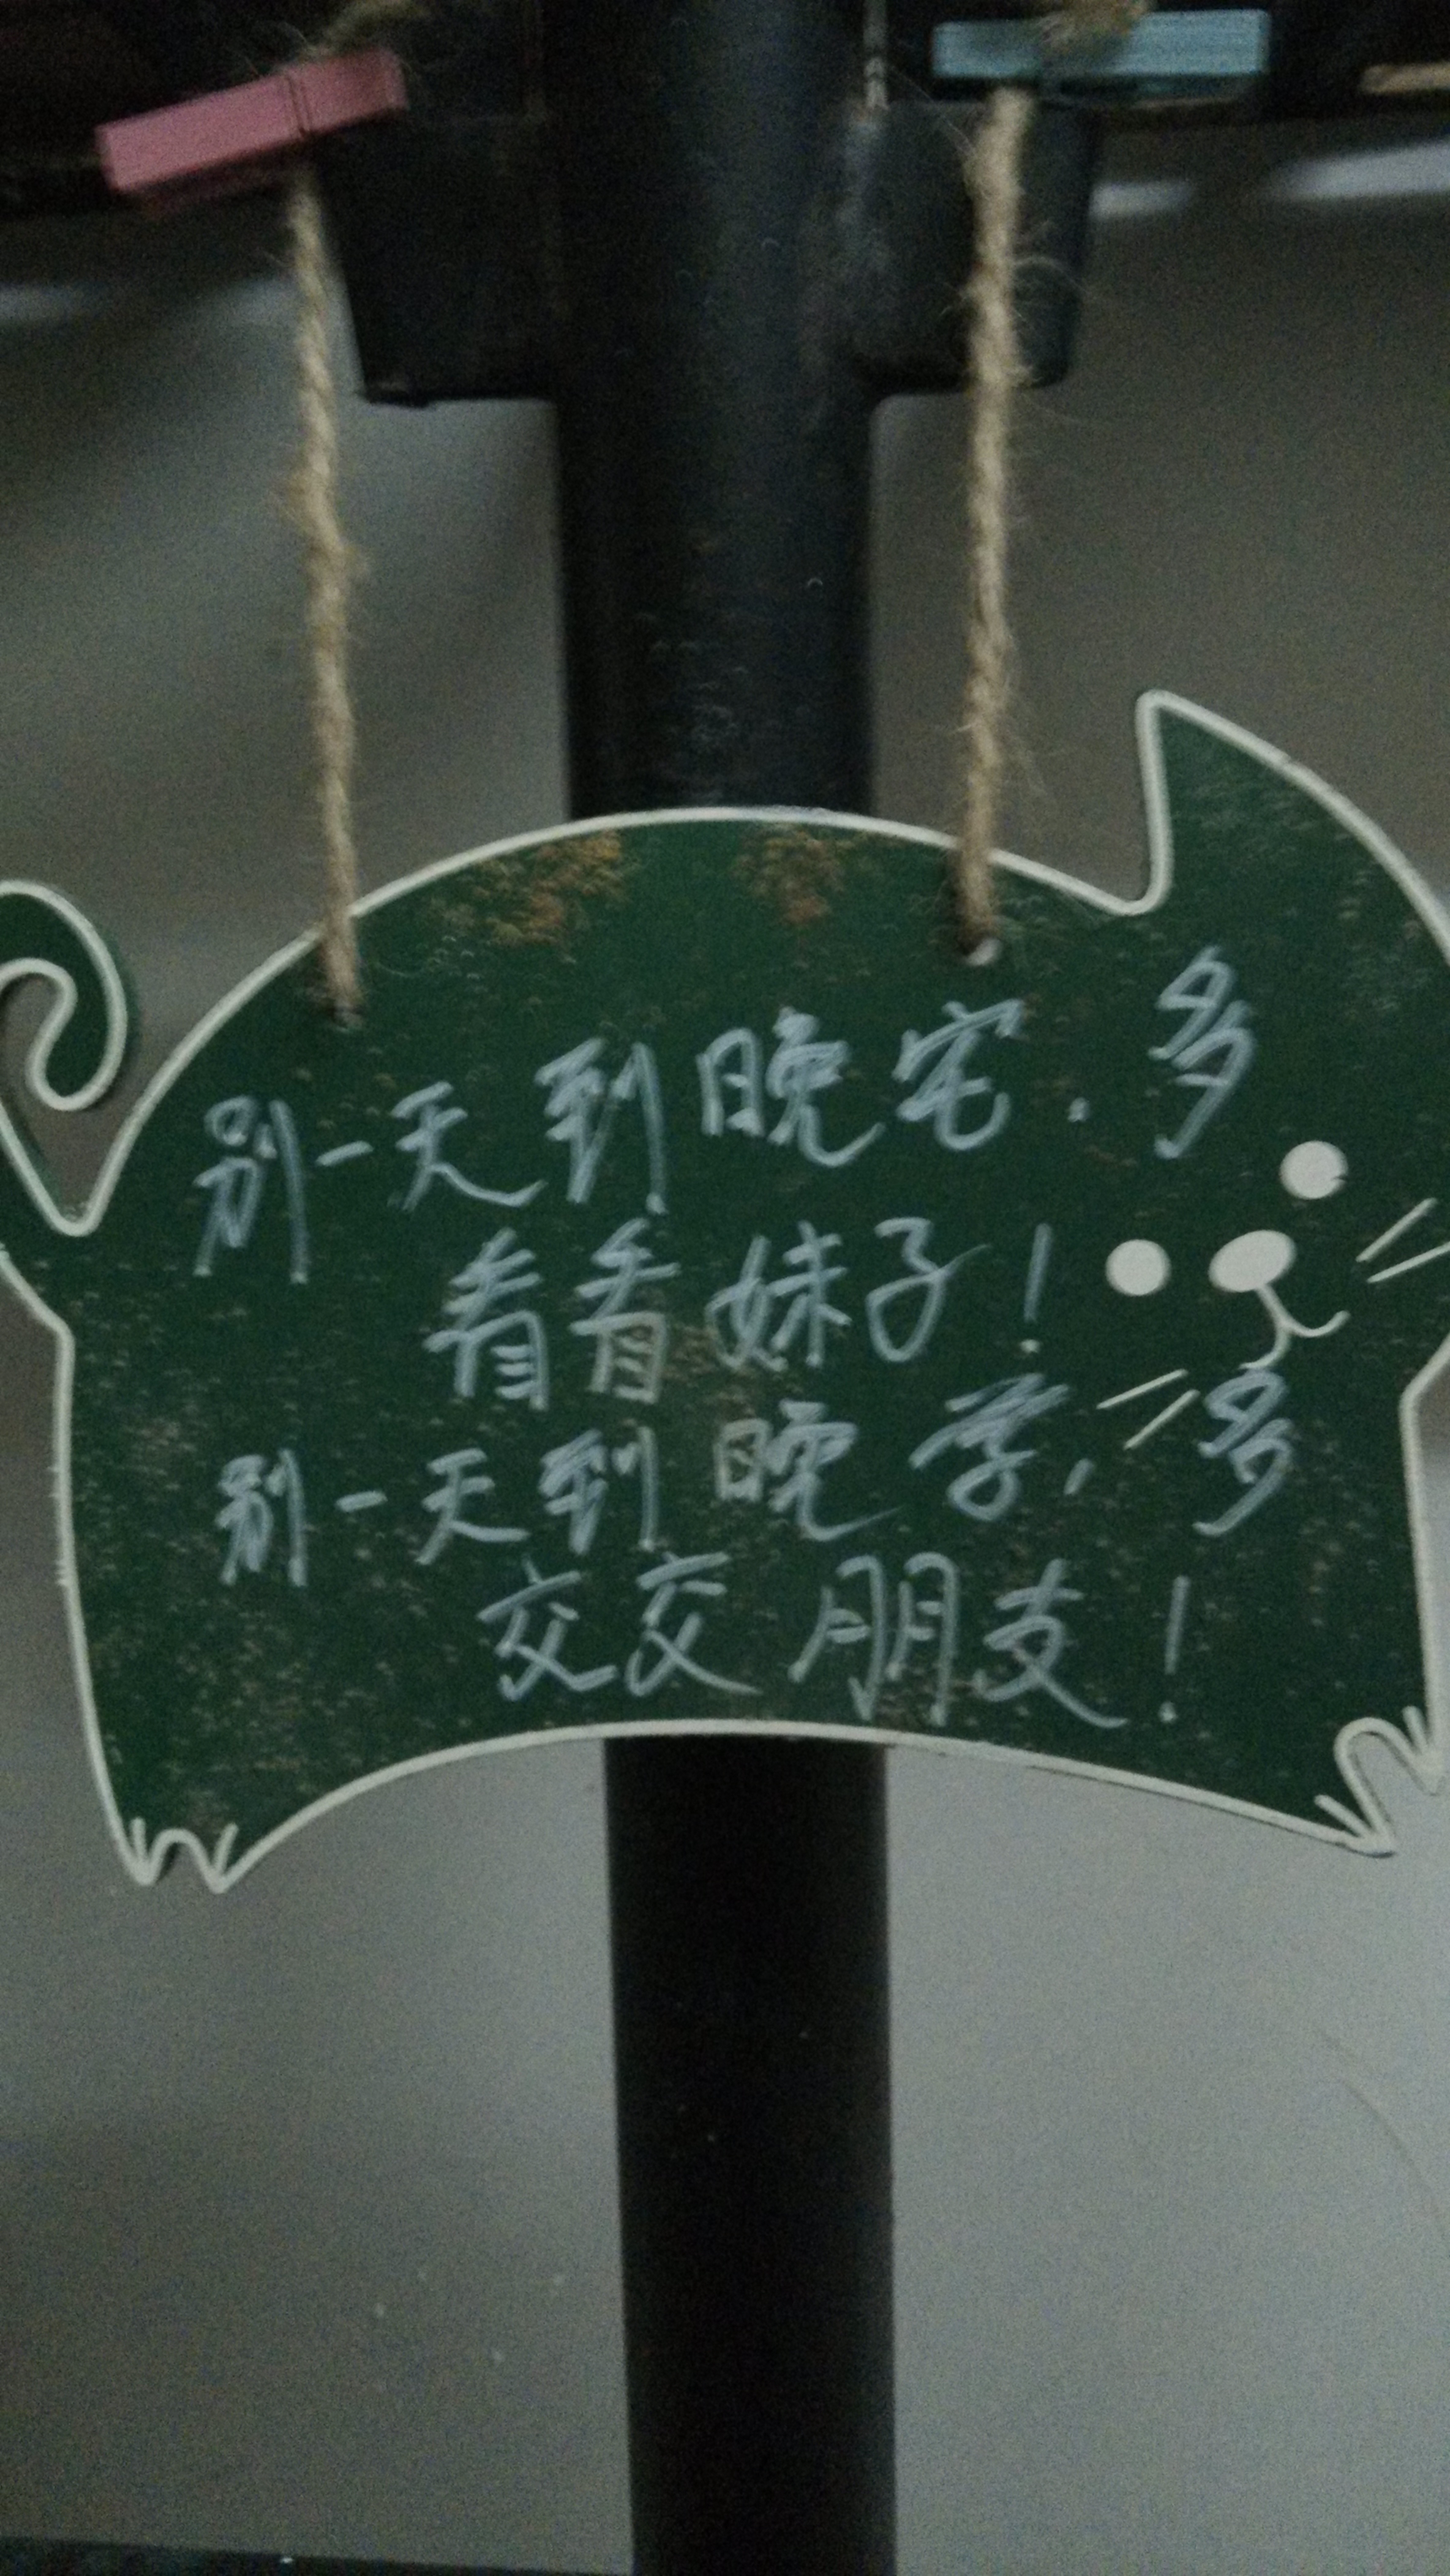 别一天到晚宅.多
看看妹子!
别一天到晚学,多
交交朋友!